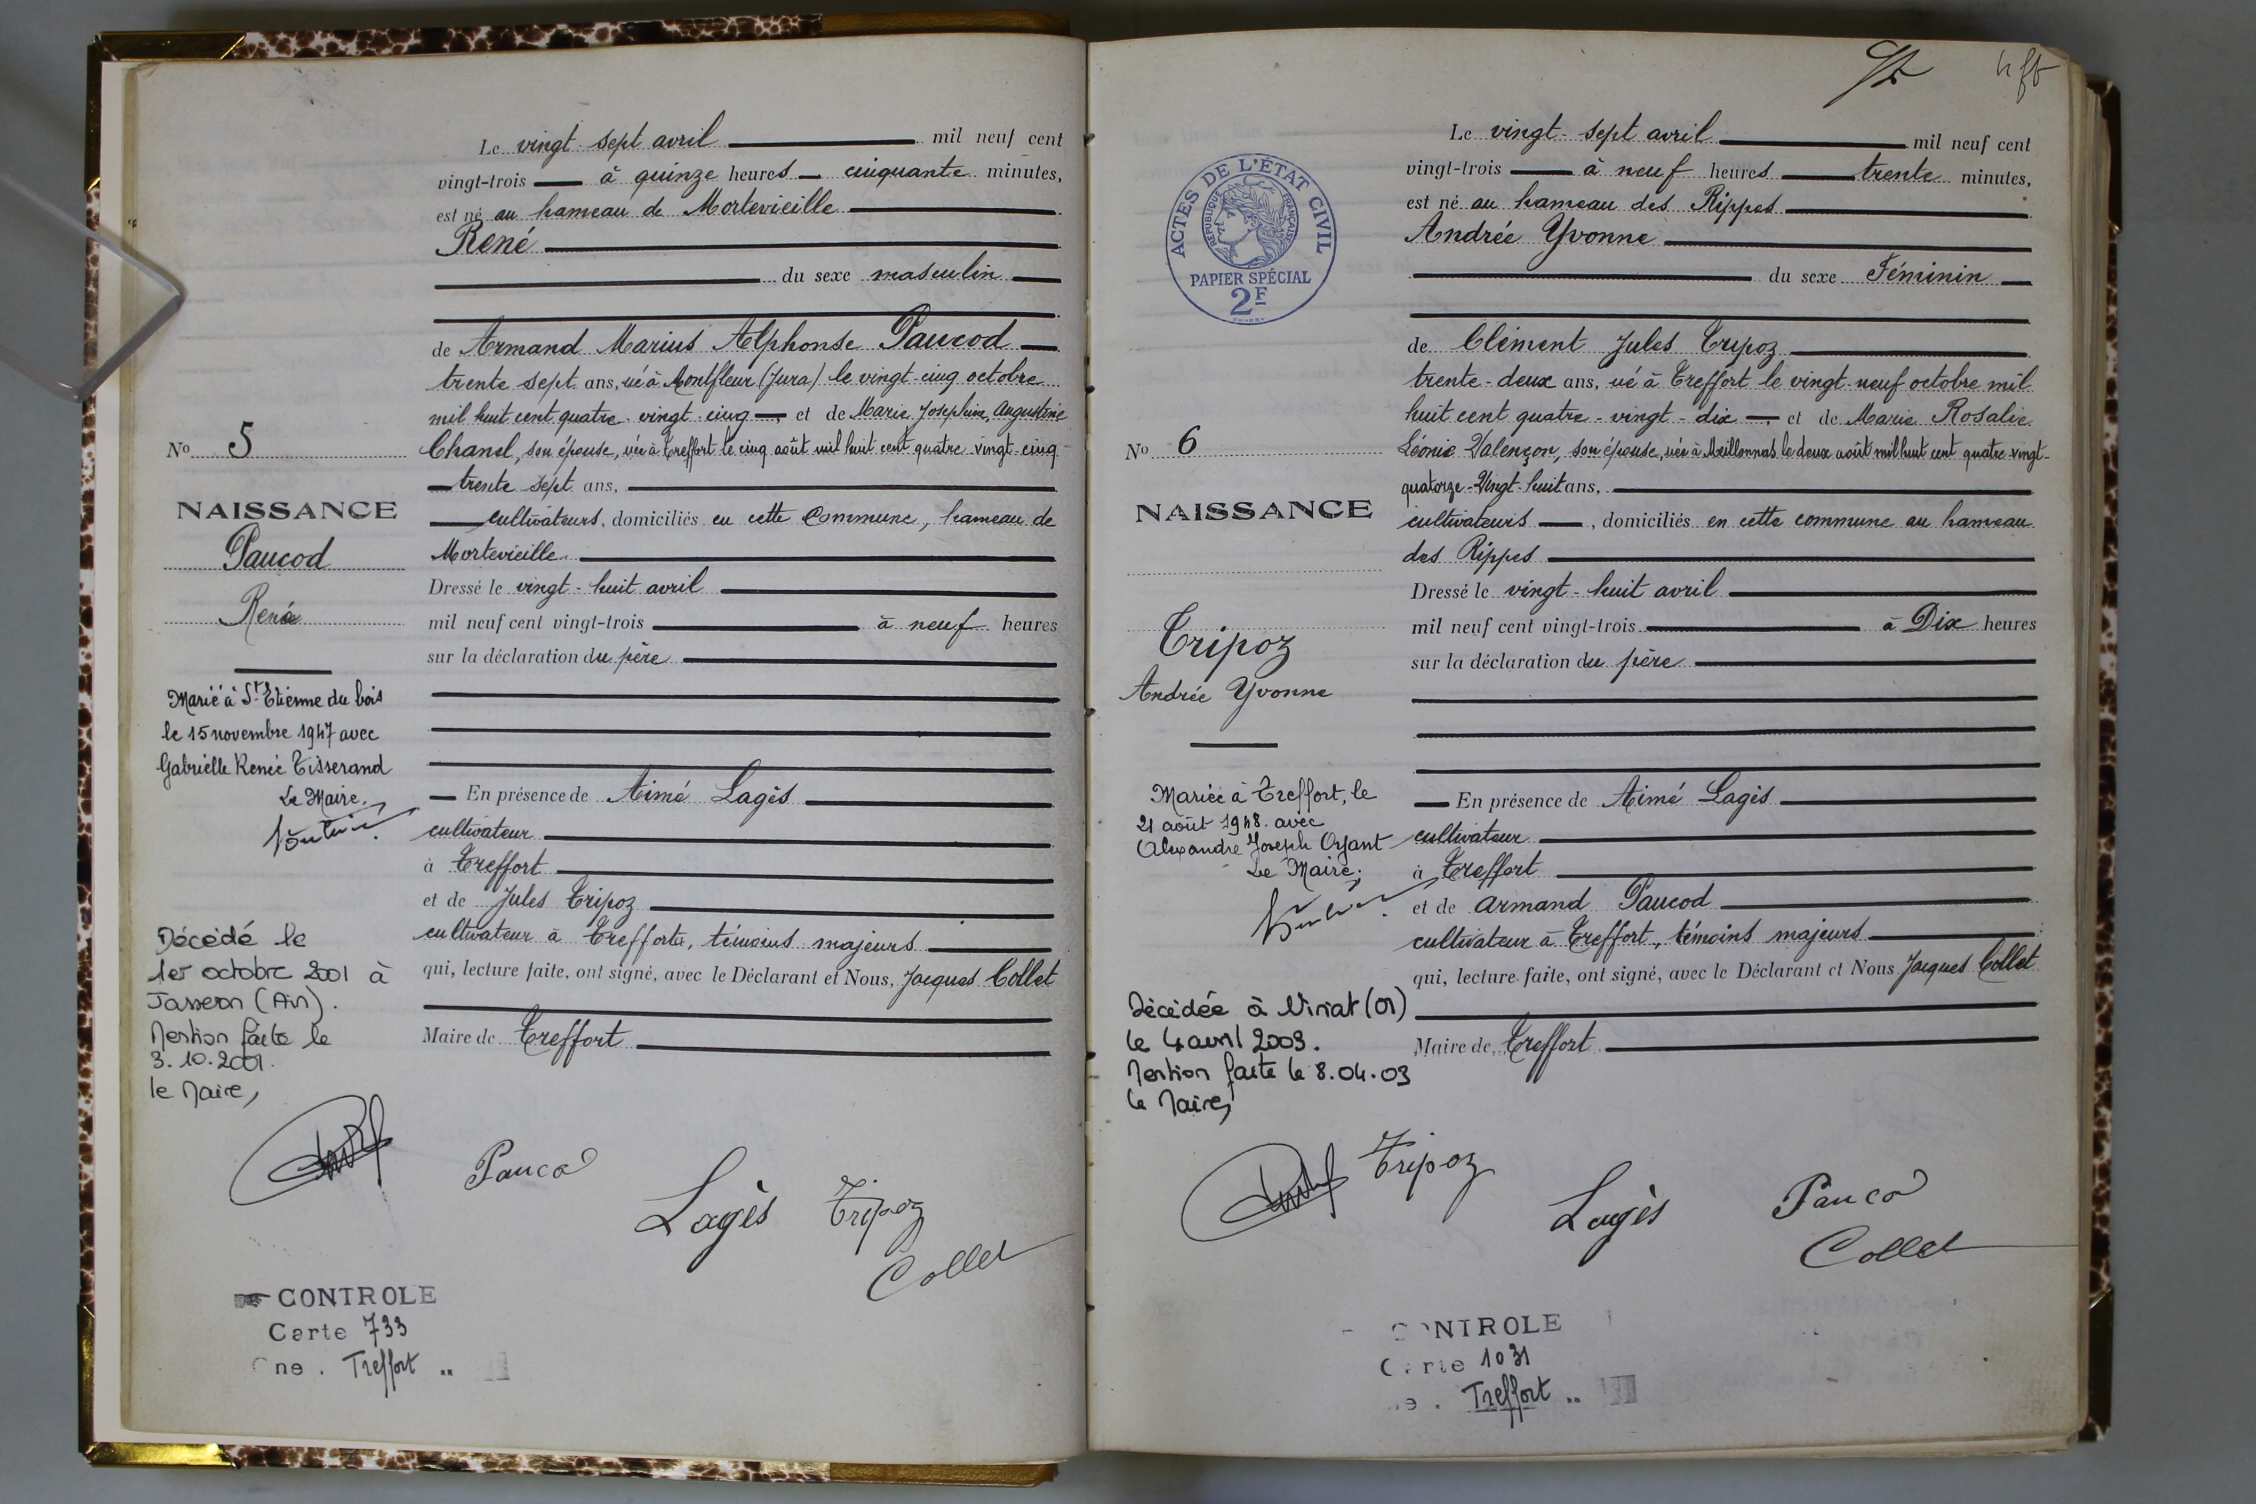 Le vingt-sept avril mil neuf cent
vingt-trois à quinze heures cinquante minutes,
est né au hameau de Mortevieille
René
du sexe masculin
de Armand Marius Alphonse Paucod
trente sept ans, né à Montfleur (Jura) le vingt-cinq octobre
mil huit cent quatre-vingt-cinq et de Marie Joséphine, Augustine
Chanel, son épouse, née à Treffort le cinq août mil huit cent quatre-vingt-cinq
trente sept ans,
cultivateurs, domiciliés en cette commune, hameau de
Mortevieille
Dressé le vingt-huit avril
mil neuf cent vingt-trois à neuf heures
sur la déclaration du père
En présence de Aimé Lagès
cultivateur
à Treffort
et de Jules Tripoz
cultivateur à Treffort, témoins majeurs
qui, lecture faite, ont signé, avec le Déclarant et Nous, Jacques Collet
Maire de Treffort
No 5
NAISSANCE
Paucod
René
Marié à St Etienne du bois
le 15 novembre 1947 avec
Gabrielle Renée Tisserand
Le Maire,
Décédé le
1er octobre 2001 à
Jasseron (Ain).
Mention faite le
3.10.2001.
le Maire,
Paucod
Lagès
Tripoz
Collet
CONTROLE
Carte 733
ne. Treffort
Le vingt-sept avril mil neuf cent
vingt-trois à neuf heures trente minutes,
est né au hameau des Rippes
Andrée Yvonne
du sexe Féminin
de Clément Jules Tripoz
trente-deux ans, né à Treffort le vingt-neuf octobre mil
huit cent quatre-vingt-dix et de Marie Rosalie
Léonie Valençon, son épouse, née à Meillonnas le deux août mil huit cent quatre vingt-
quatorze-Vingt-huit ans,
cultivateurs, domiciliés en cette commune au hameau
des Rippes
Dressé le vingt-huit avril
mil neuf cent vingt-trois à Dix heures
sur la déclaration du père
En présence de Aimé Lagès
cultivateur
à Treffort
et de Armand Paucod
cultivateur à Treffort, témoins majeurs
qui, lecture faite, ont signé, avec le Déclarant et Nous Jacques Collet
Maire de Treffort
ACTES DE L'ÉTAT CIVIL
RÉPUBLIQUE FRANÇAISE
PAPIER SPÉCIAL
2F
No 6
NAISSANCE
Tripoz
Andrée Yvonne
Mariée à Treffort, le
21 août 1948 avec
Alexandre Joseph Oyant
Le Maire,
Décédée à Viriat (01)
le 4 avril 2003.
Mention faite le 8.04.03
le Maire,
Tripoz
Lagès
Paucod
Collet
CONTROLE
Carte 1031
e. Treffort